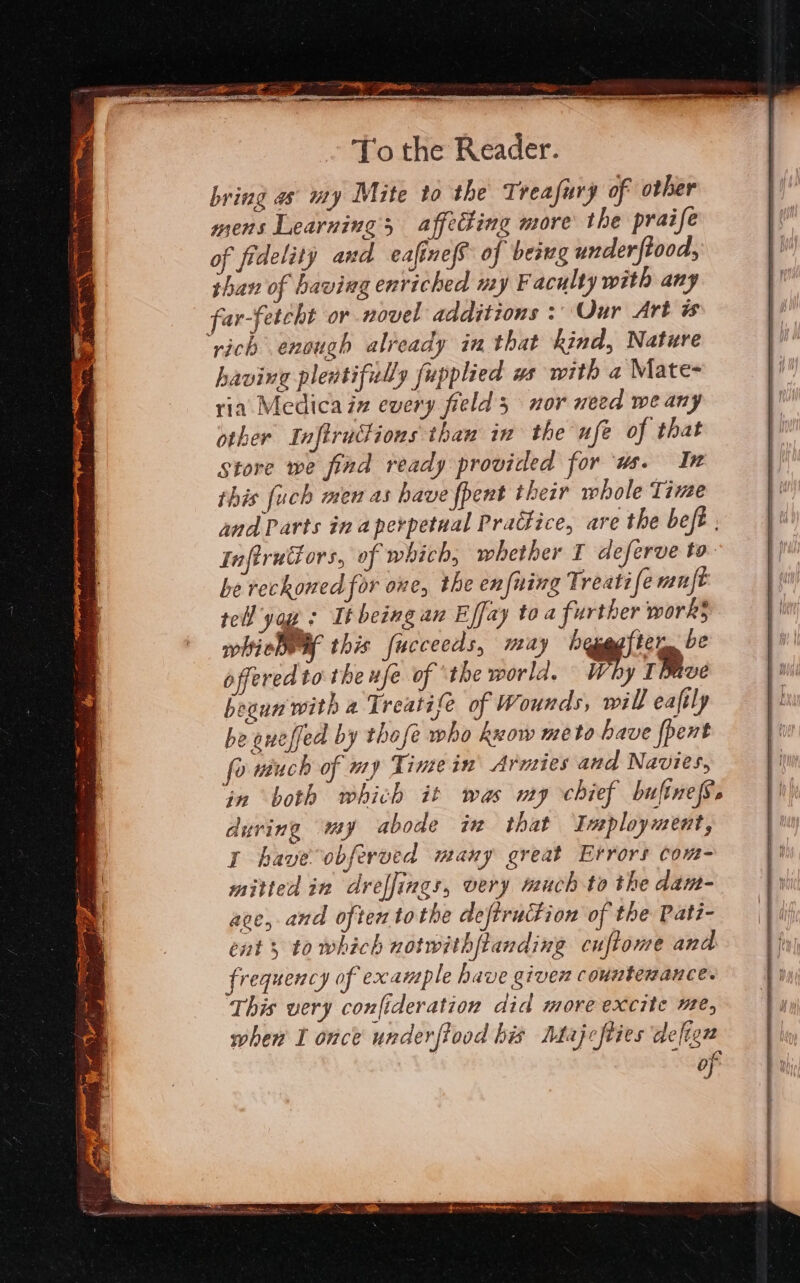 To the Reader.
bring as my Mite to the Treaſury of other
mens Learning; affecting more the praiſe
of fidelity and eaſineſs of being underſtood,
than of having enriched my Faculty with any
far-fetcht or novel additions : Our Art is
rich enough already in that kind, Nature
having plentifully ſupplied us with a Mate-
ria Medica in every field; nor need we any
other Inſtructions than in the uſe of that
Store we find ready provided for us. In
this ſuch men as have ſpent their whole Time
and Parts in a perpetual Practice, are the beſt
Inſtructors, of which, whether I deſerve to
be reckoned for one, the enſuing Treatiſe muſt
tell you : It being an Eſſay to a further work;
which if this ſucceeds, may hereafter be
offered to the uſe of the world. Why I have
begun with a Treatiſe of Wounds, will eaſily
be gueſſed by thoſe who know me to have ſpent
ſo much of my Time in Armies and Navies,
in both which it was my chief buſineſs.
during my abode in that Imployment,
I have obſerved many great Errors com-
mitted in dreſſings, very much to the dam-
age, and often to the deſtruction of the Pati-
ent; to which notwithſtanding cuſtome and
frequency of example have given countenance.
This very conſideration did more excite me,
when I once underſtood his Majeſties deſign
of